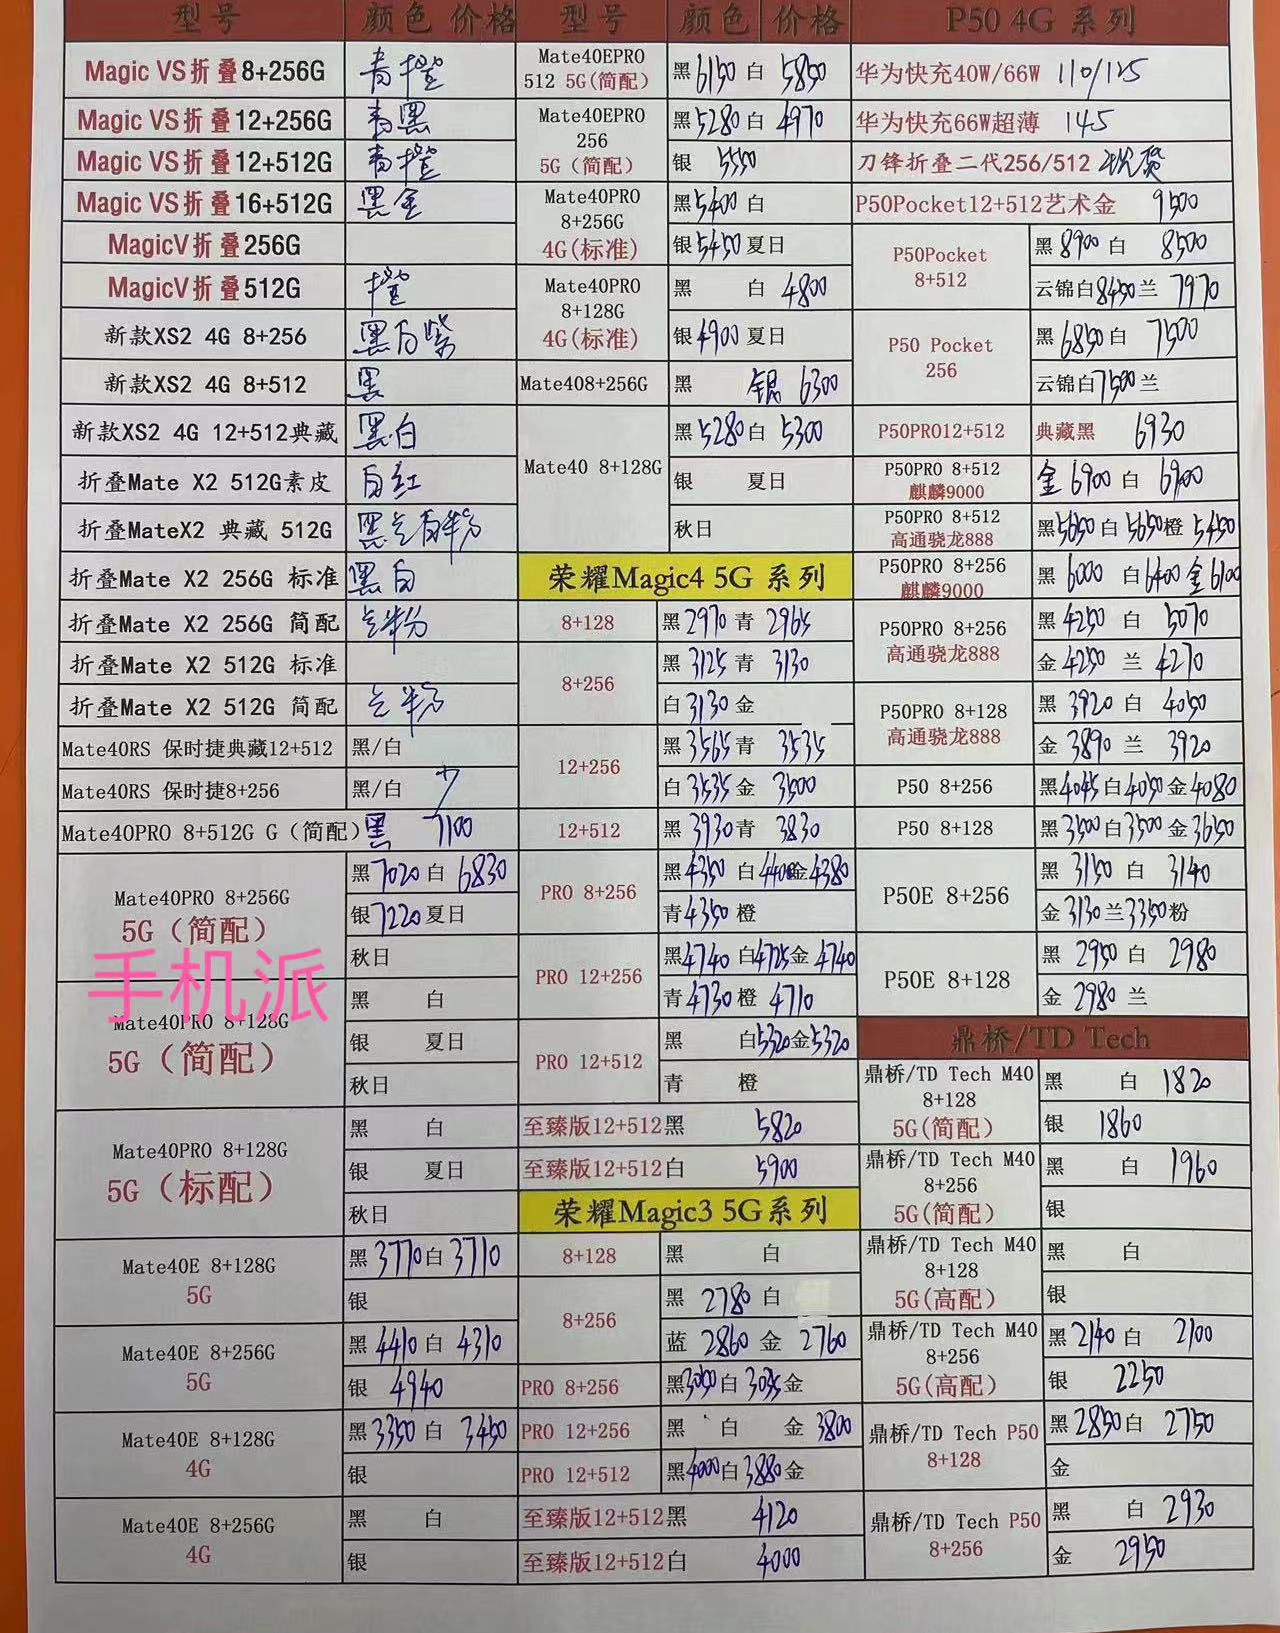 型号 颜色 价格 型号 颜色 价格 P50 4G 系列
Magic VS折叠8+256G 青橙
Magic VS折叠12+256G 青黑
Magic VS折叠12+512G 青橙
Magic VS折叠16+512G 黑金
MagicV折叠256G
MagicV折叠512G 橙
新款XS2 4G 8+256 黑白紫
新款XS2 4G 8+512 黑
新款XS2 4G 12+512典藏 黑白
折叠Mate X2 512G素皮 白红
折叠MateX2 典藏 512G
折叠Mate X2 256G 标准 黑白
折叠Mate X2 256G 简配
折叠Mate X2 512G 标准
折叠Mate X2 512G 简配
Mate40RS 保时捷典藏12+512 黑/白
Mate40RS 保时捷8+256 黑/白
Mate40PRO 8+512G G（简配） 黑 7100
Mate40PRO 8+256G
5G（简配）
黑7020白 6830
银7220夏日
秋日
手机派
Mate40PRO 8+128G
5G（简配）
黑 白
银 夏日
秋日
Mate40PRO 8+128G
5G（标配）
黑 白
银 夏日
秋日
Mate40E 8+128G
5G
黑3770白3710
银
Mate40E 8+256G
5G
黑4410白4310
银 4940
Mate40E 8+128G
4G
黑3350白 3450
银
Mate40E 8+256G
4G
黑 白
银
Mate40EPRO
512 5G(简配)
黑6150白 5850
Mate40EPRO
256
5G（简配）
黑5280白4970
银 5550
Mate40PRO
8+256G
4G(标准)
黑5400白
银5450夏日
Mate40PRO
8+128G
4G(标准)
黑 白4800
银4900夏日
Mate408+256G 黑 银 6300
Mate40 8+128G
黑5280白5300
银 夏日
秋日
荣耀Magic4 5G 系列
8+128 黑2970青 2965
8+256
黑 3125青 3130
白3130金
12+256
黑3565青 3535
白3535金 3500
12+512 黑 3930青 3830
PRO 8+256
黑4350 白4400金4380
青4350橙
PRO 12+256
黑4740白4725金4740
青4730橙 4710
PRO 12+512
黑 白5320金5320
青 橙
至臻版12+512黑 5820
至臻版12+512白 5900
荣耀Magic3 5G系列
8+128 黑 白
8+256
黑 2780白
蓝 2860金 2760
PRO 8+256 黑3050白3035金
PRO 12+256 黑 白 金3800
PRO 12+512 黑4000白3880金
至臻版12+512黑 4120
至臻版12+512白 4000
华为快充40W/66W 110/125
华为快充66W超薄 145
刀锋折叠二代256/512
P50Pocket12+512艺术金 9500
P50Pocket
8+512
黑8900白 8500
云锦白8450兰 7970
P50 Pocket
256
黑6850白 7500
云锦白7500兰
P50PRO12+512 典藏黑 6930
P50PRO 8+512
麒麟9000
金 6900白 6900
P50PRO 8+512
高通骁龙888
黑5650白5650橙5450
P50PRO 8+256
麒麟9000
黑 6000 白6400金6100
P50PRO 8+256
高通骁龙888
黑4250 白 5070
金4250 兰4270
P50PRO 8+128
高通骁龙888
黑 3920白 4050
金 3890兰 3920
P50 8+256 黑4045白4050金4080
P50 8+128 黑3500白3500金3650
P50E 8+256
黑 3150白 3140
金3130兰3350粉
P50E 8+128
黑 2950白 2980
金 2980兰
鼎桥/TD Tech
鼎桥/TD Tech M40
8+128
5G(简配)
黑 白 1820
银 1860
鼎桥/TD Tech M40
8+256
5G(简配)
黑 白 1960
银
鼎桥/TD Tech M40
8+128
5G(高配)
黑 白
银
鼎桥/TD Tech M40
8+256
5G(高配)
黑2140白 2100
银 2250
鼎桥/TD Tech P50
8+128
黑2850白 2750
金
鼎桥/TD Tech P50
8+256
黑 白 2930
金 2950